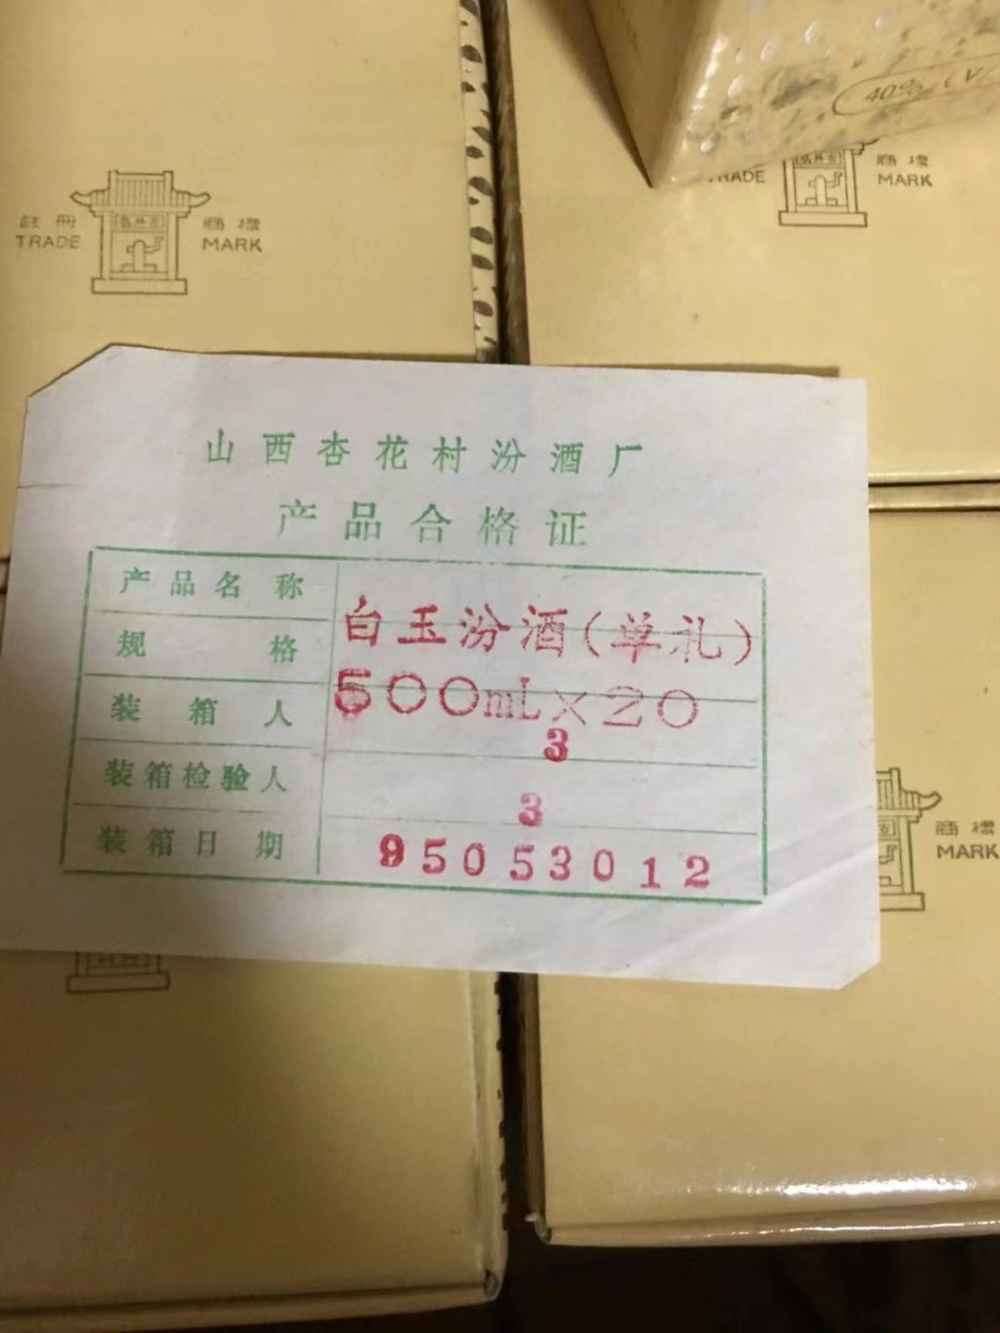 40% (V/
註冊 商標
TRADE MARK
TRADE MARK
商標
山西杏花村汾酒厂
产品合格证
产品名称 白玉汾酒(单礼)
规格 500mL×20
装箱人 3
装箱检验人 3
装箱日期 95053012
商標
MARK